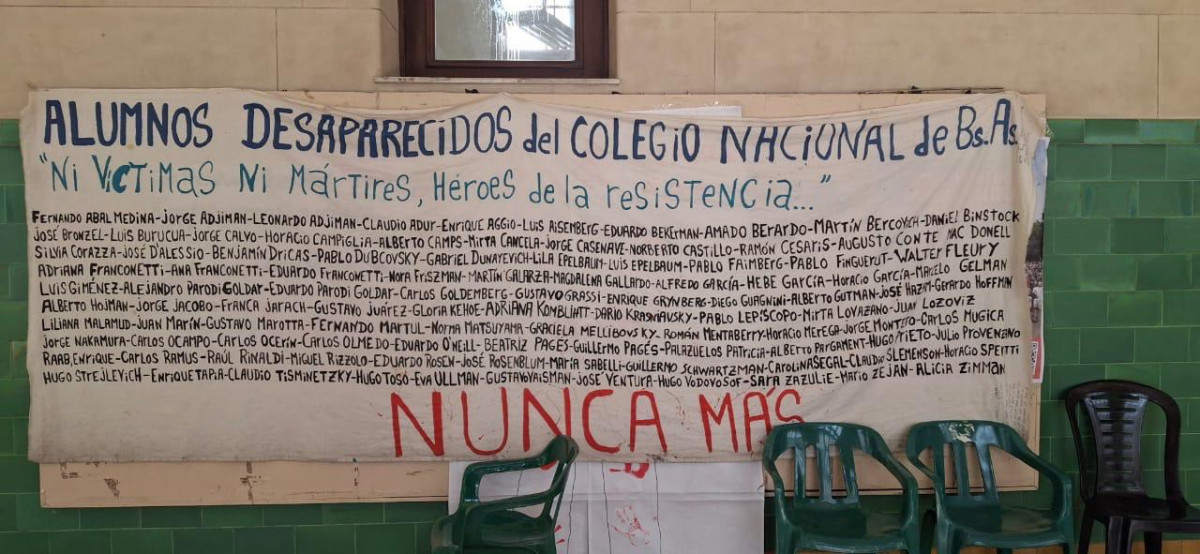 ALUMNOS DESAPARECIDOS del COLEGIO NACIONAL de Bs.As.
"Ni VíCTiMaS Ni MártiRES, HÉROES de la reSiSTENCia..."
FERNANDO ABAL MEDINA-JORGE ADJIMAN-LEONARDO ADJIMAN-CLAUDIO ADUR-ENRIQUE AGGIO-LUIS AISEMBERG-EDUARDO BEKERMAN-AMADO BERARDO-MARTÍN BERCOVICH-DANIEL BINSTOCK
JOSÉ BRONZEL-LUIS BURUCUA-JORGE CALVO-HORACIO CAMPIGLIA-ALBERTO CAMPS-MIRTA CANCELA-JORGE CASENAVE-NORBERTO CASTILLO-RAMÓN CESARIS-AUGUSTO CONTE MAC DONELL
SILVIA CORAZZA-JOSÉ DALESSIO-BENJAMÍN DRICAS-PABLO DUBCOVSKY-GABRIEL DUNAYEVICH-LILA EPELBAUM-LUIS EPELBAUM-PABLO FAIMBERG-PABLO FINGUERUT-WALTER FLEURY
ADRIANA FRANCONETTI-ANA FRANCONETTI-EDUARDO FRANCONETTI-NORA FRISZMAN-MARTÍN GALARZA-MAGDALENA GALLARDO-ALFREDO GARCÍA-HEBE GARCÍA-HORACIO GARCÍA-MARCELO GELMAN
LUIS GIMÉNEZ-ALEJANDRO PARODI GOLDAR-EDUARDO PARODI GOLDAR-CARLOS GOLDEMBERG-GUSTAVO GRASSI-ENRIQUE GRYNBERG-DIEGO GUAGNINI-ALBERTO GUTMAN-JOSÉ HAZIM-GERARDO HOFFMAN
ALBERTO HOJMAN-JORGE JACOBO-FRANCA JARACH-GUSTAVO JUÁREZ-GLORIA KEHOE-ADRIANA KOMBLIHTT-DARIO KRASNIAVSKY-PABLO LEPÍSCOPO-MIRTA LOVAZANO-JUAN LOZOVIZ
LILIANA MALAMUD-JUAN MARÍN-GUSTAVO MAROTTA-FERNANDO MARTUL-NORMA MATSUYAMA-GRACIELA MELLIBOVSKY-ROMÁN MENTABERRY-HORACIO MEREGA-JORGE MONTERO-CARLOS MUGICA
JORGE NAKAMURA-CARLOS OCAMPO-CARLOS OCERÍN-CARLOS OLMEDO-EDUARDO O'NEILL-BEATRIZ PAGES-GUILLERMO PAGÉS-PALAZUELOS PATRICIA-ALBERTO PARGAMENT-HUGO PRIETO-JULIO PROVENZANO
RAAB, ENRIQUE-CARLOS RAMUS-RAÚL RINALDI-MIGUEL RIZZOLO-EDUARDO ROSEN-JOSÉ ROSENBLUM-MARÍA SABELLI-GUILLERMO SCHWARTZMAN-CAROLINA SEGAL-CLAUDIO SLEMENSON-HORACIO SPEITTI
HUGO STREJLEVICH-ENRIQUE TAPIA-CLAUDIO TISMINETZKY-HUGO TOSO-EVA ULLMAN-GUSTAVO VAISMAN-JOSÉ VENTURA-HUGO VODOVOSOF-SARA ZAZULIE-MARIO ZEJAN-ALICIA ZIMMAN
NUNCA MÁS